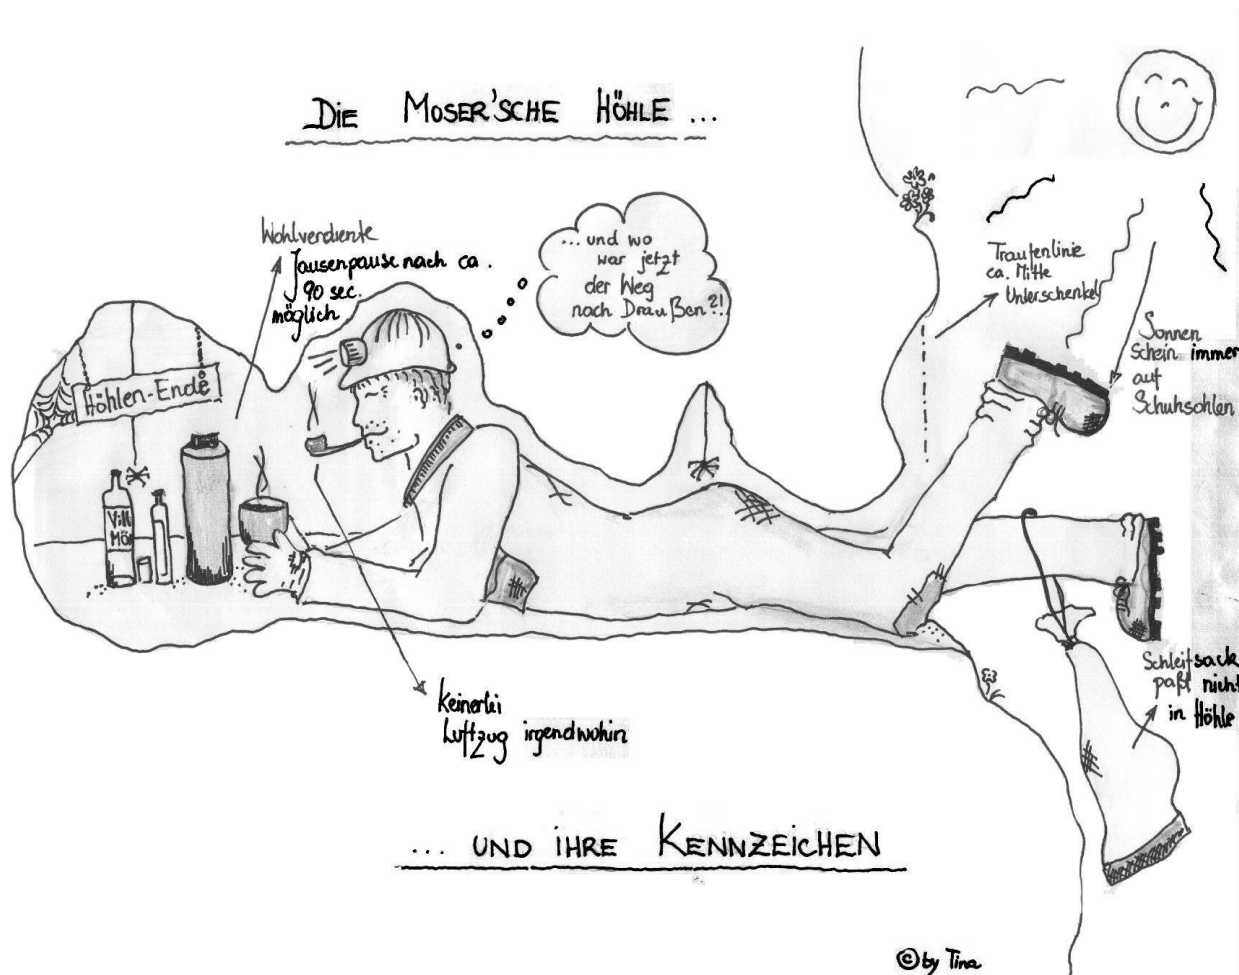 Die Moser'sche Höhle ...
Wohlverdiente
Jausenpause nach ca.
90 sec.
möglich
...und wo
war jetzt
der Weg
nach Draußen?!
Traufenlinie
ca. Mitte
Unterschenkel
Sonnen
schein immer
auf
Schuhsohlen
Höhlen-Ende
Vill
Mör
Schleifsack
paßt nicht
in Höhle
Keinerlei
Luftzug irgendwohin
... und ihre Kennzeichen
© by Tina